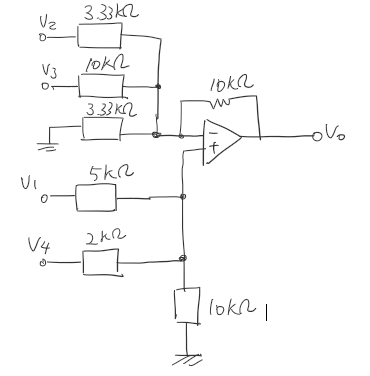 V2
3.33kΩ
V3
10kΩ
3.33kΩ
10kΩ
−
+
Vo
V1
5kΩ
V4
2kΩ
10kΩ